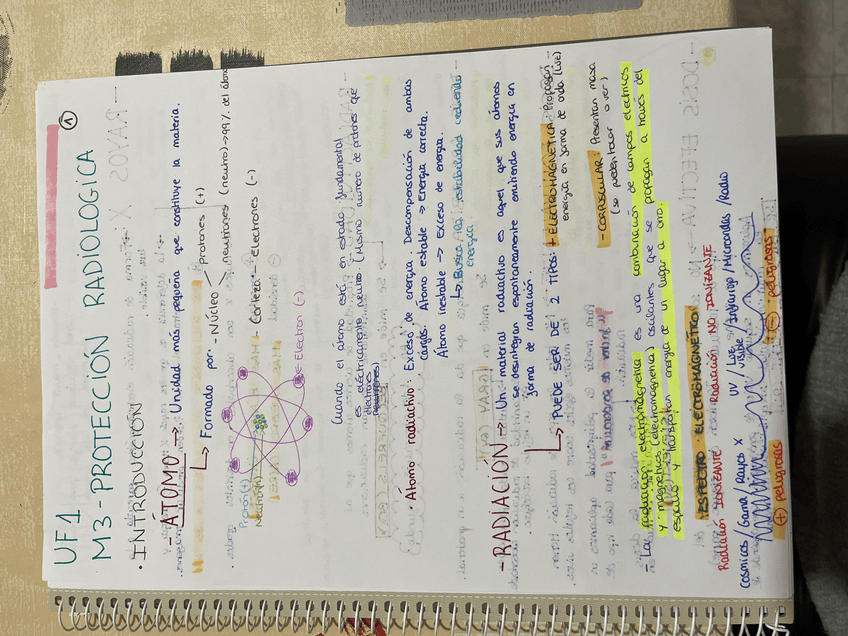 UF1 ①
M3-PROTECCIÓN RADIOLOGICA
· INTRODUCCIÓN
- ÁTOMO → Unidad más pequeña que constituye la materia.
↳ Formado por: - Núcleo < protones (+)
neutrones (neutro) → 99% del átomo
- Corteza - electrones (-)
Protón (+)
Neutrón
Electrón (-)
Cuando el átomo está en estado fundamental
es eléctricamente neutro. (Mismo número de protones que
electrones
· Átomo radiactivo: Exceso de energía. Descompensación de ambas
cargas. Átomo estable → Energía correcta.
Átomo inestable → Exceso de energía.
↳ Busca la estabilidad cediendo
energía
- RADIACIÓN → Un material radiactivo es aquel que sus átomos
se desintegran espontaneamente emitiendo energía en
forma de radiación.
↳ PUEDE SER DE 2 TIPOS: + ELECTROMAGNETICA: Propagan
energía en forma de onda (Luz)
- CORPUSCULAR: Presentan masa
(se pueden tocar o ver)
- La radiación electromagnetica es una combinación de campos electricos
y magneticos (electromagnetica) oscilantes que se propagan a través del
espacio y trasportan energía de un lugar a otro.
ESPECTRO ELECTROMAGNETICO
Radiación IONIZANTE Radiación NO IONIZANTE
Cosmicos / Gama / Rayos X UV / Luz visible / Infrarrojo / Microondas / Radio
⊕ peligrosas ⊖ peligrosas